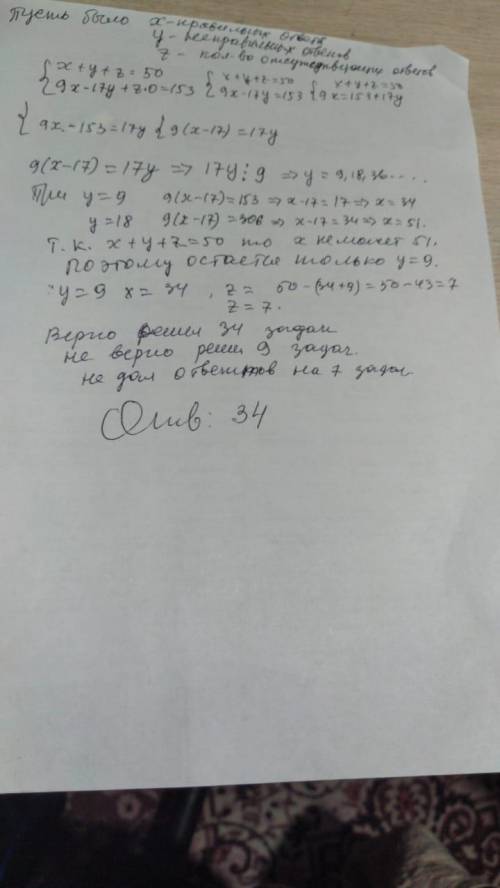 Пусть было x-правильных ответ
y - неправильных ответов
z - кол-во отсутствующих ответов
{x+y+z=50 {x+y+z=50 {x+y+z=50
{9x-17y+z·0=153 {9x-17y=153 {9x=153+17y
{9x-153=17y {9(x-17)=17y
9(x-17)=17y => 17y⋮9 => y=9,18,36.....
При y=9 9(x-17)=153 => x-17=17 => x=34
y=18 9(x-17)=306 => x-17=34 => x=51.
т.к. x+y+z=50 то x не может 51.
поэтому остается только y=9.
y=9 x=34, z= 50-(34+9)=50-43=7
z=7.
Верно решил 34 задач
не верно решил 9 задач.
не дал ответов на 7 задач.
Отв: 34